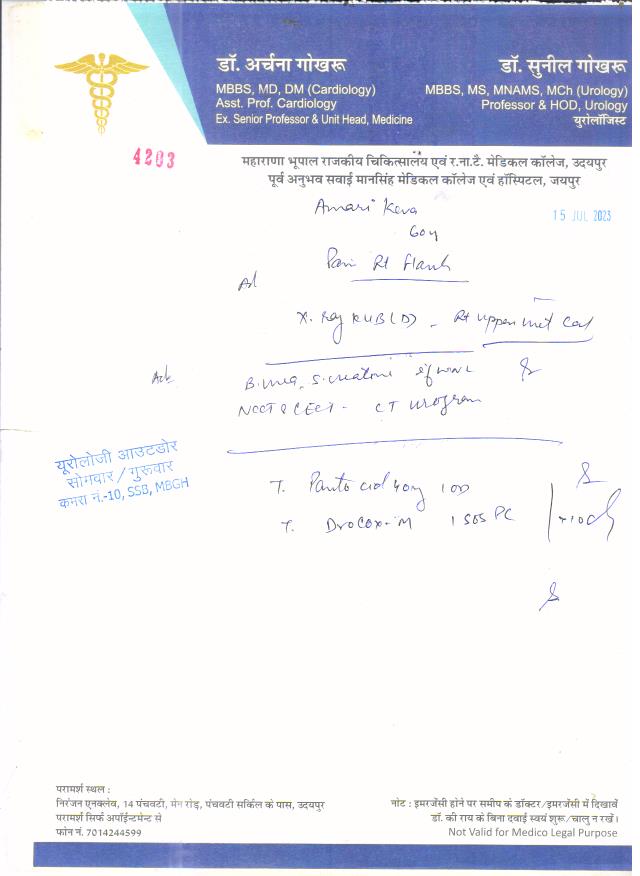 डॉ. अर्चना गोखरू
MBBS, MD, DM (Cardiology)
Asst. Prof. Cardiology
Ex. Senior Professor & Unit Head, Medicine
डॉ. सुनील गोखरू
MBBS, MS, MNAMS, MCh (Urology)
Professor & HOD, Urology
यूरोलॉजिस्ट
4203
महाराणा भूपाल राजकीय चिकित्सालय एवं र.ना.टै. मेडिकल कॉलेज, उदयपुर
पूर्व अनुभव सवाई मानसिंह मेडिकल कॉलेज एवं हॉस्पिटल, जयपुर
15 JUL 2023
Pain Rt Flank
Ad
X. Ray KUB (D) - Rt upper
B. urea, S. creatinine if WNL
NCCT & CECT - CT urogram
यूरोलोजी आउटडोर
सोमवार / गुरूवार
कमरा नं.-10, SSB, MBGH
T. Pantocid 40mg 1 OD
T. Drocox-M 1 SOS PC
परामर्श स्थल :
निरंजन एनक्लेव, 14 पंचवटी, मेन रोड़, पंचवटी सर्किल के पास, उदयपुर
परामर्श सिर्फ अपॉईन्टमेन्ट से
फोन नं. 7014244599
नोट : इमरजेंसी होने पर समीप के डॉक्टर/इमरजेंसी में दिखावें
डॉ. की राय के बिना दवाई स्वयं शुरू/चालु न रखें।
Not Valid for Medico Legal Purpose